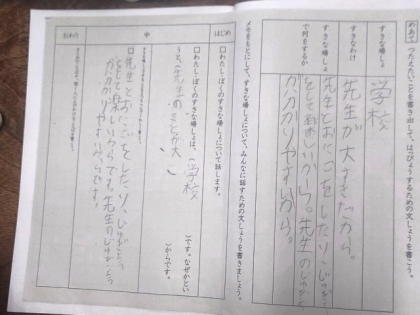 めあて つたえたいことを書き出して、はっぴょうするための文しょうを書こう。
すきな場しょ
学校
すきなわけ
先生が大すきだから。
すきな場しょで何をするか
先生とおにごをしたり、じゅぎょう
をして楽しいから。先生のじゅぎょう
がわかりやすいから。
メモをもとにして、すきな場しょについて、みんなに話すための文しょうを書きましょう。
はじめ
□わたし・ぼくのすきな場しょについて話します。
中
□わたし・ぼくのすきな場しょは、(学校)です。なぜかとい
うと、(先生のことが大)からです。
□先生とおにごをしたり、じゅぎょう
をして楽しいからです。先生のじゅぎょう
がわかりやすいからです。
おわり